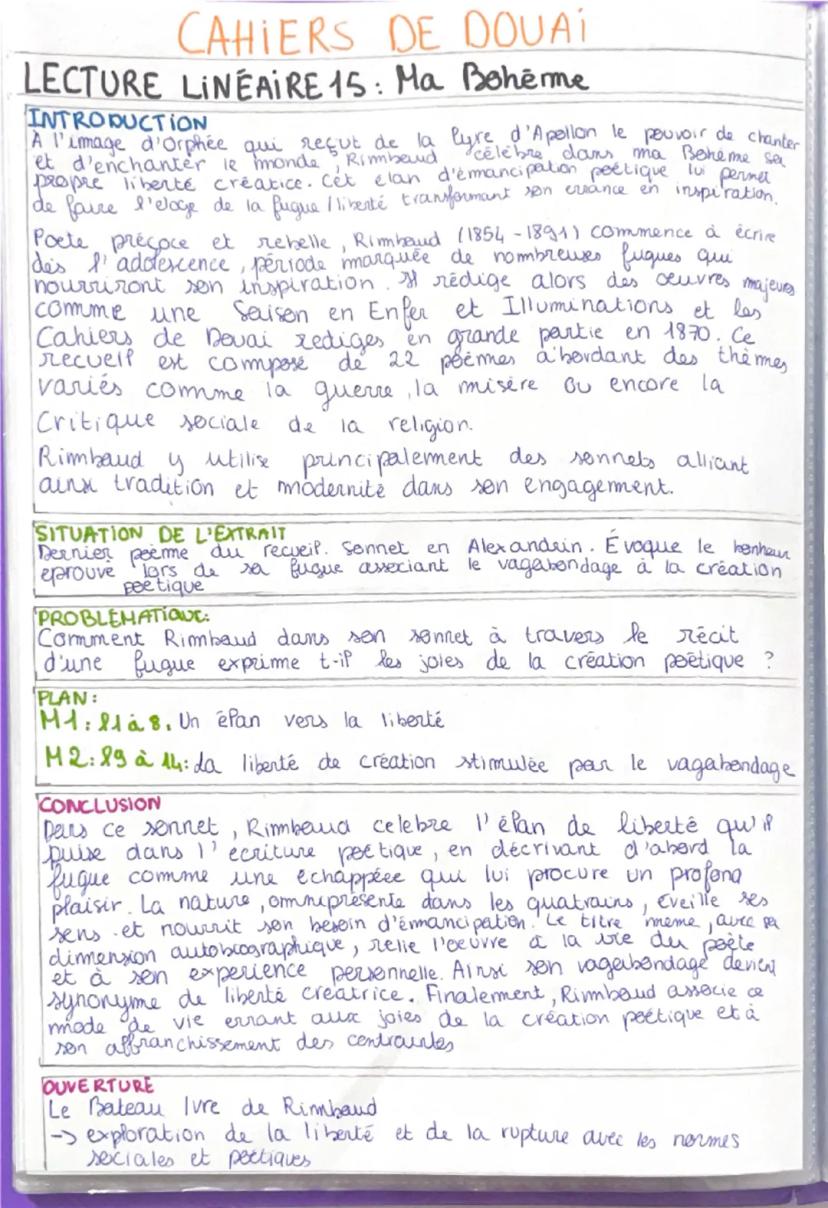 CAHIERS DE DOUAI
LECTURE LINÉAIRE 15 : Ma Bohême
INTRODUCTION
A l'image d'Orphée qui reçut de la lyre d'Apollon le pouvoir de chanter
et d'enchanter le monde, Rimbaud célèbre dans ma Bohème sa
propre liberté créatice. Cet élan d'émancipation poétique lui permet
de faire l'eloge de la fugue / liberté transformant son errance en inspiration.
Poete précoce et rebelle, Rimbaud (1854 - 1891) commence à écrire
dès l'adolescence, période marquée de nombreuses fugues qui
nourriront son inspiration. Il rédige alors des oeuvres majeures
comme une Saison en Enfer et Illuminations et les
Cahiers de Douai rediges en grande partie en 1870. Ce
recueil est composé de 22 poèmes abordant des thèmes
variés comme la guerre, la misère ou encore la
critique sociale de la religion.
Rimbaud y utilise principalement des sonnets alliant
ainsi tradition et modernité dans son engagement.
SITUATION DE L'EXTRAIT
Dernier poème du recueil. Sonnet en Alexandrin. Évoque le bonheur
eprouvé lors de sa fugue associant le vagabondage à la création
poétique
PROBLÉMATIQUE:
Comment Rimbaud dans son sonnet à travers le récit
d'une fugue exprime t-il les joies de la création poétique ?
PLAN:
M1: l1 à 8. Un élan vers la liberté
M2: l9 à 14: La liberté de création stimulée par le vagabondage
CONCLUSION
Dans ce sonnet, Rimbaud celebre l'élan de liberté qu'il
puise dans l'ecriture poétique, en décrivant d'abord la
fugue comme une echappée qui lui procure un profond
plaisir. La nature, omniprésente dans les quatrains, eveille ses
sens et nourrit son besoin d'émancipation. Le titre meme, avec sa
dimension autobiographique, relie l'oeuvre à la vie du poète
et à son experience personnelle. Ainsi son vagabondage devient
synonyme de liberté creatrice. Finalement, Rimbaud associe ce
mode de vie errant aux joies de la création poétique et à
son affranchissement des contraintes
OUVERTURE
Le Bateau Ivre de Rimbaud
-> exploration de la liberté et de la rupture avec les normes
sociales et poétiques